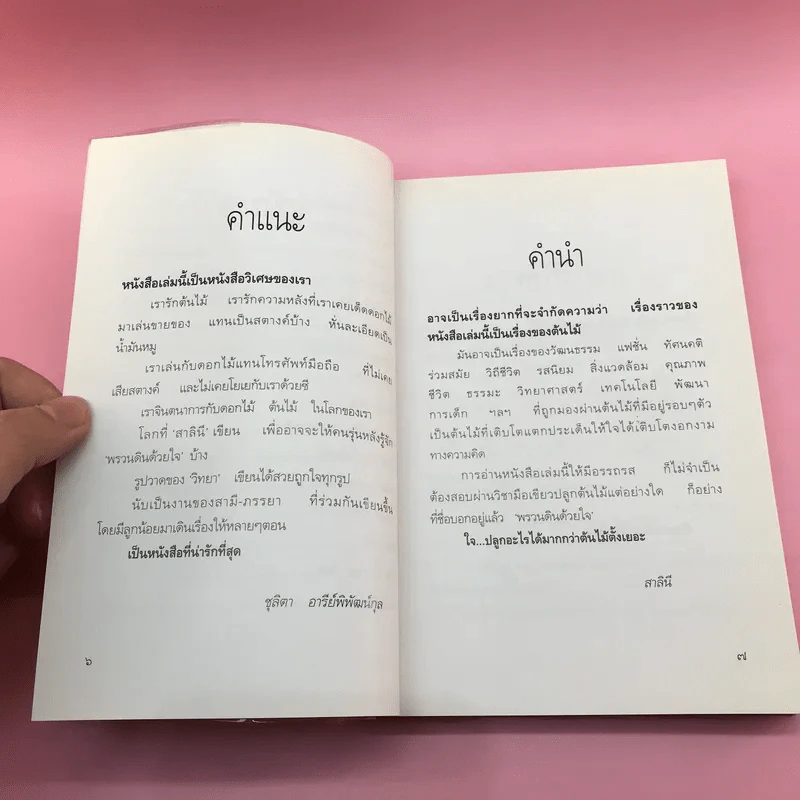 คำแนะ
หนังสือเล่มนี้เป็นหนังสือวิเศษของเรา
เรารักต้นไม้ เรารักความหลังที่เราเคยเด็ดดอกไม้
มาเล่นขายของ แทนเป็นสตางค์บ้าง หั่นละเอียดเป็น
น้ำมันหมู
เราเล่นกับดอกไม้แทนโทรศัพท์มือถือ ที่ไม่เคย
เสียสตางค์ และไม่เคยโยเยกับเราด้วยซี
เราจินตนาการกับดอกไม้ ต้นไม้ ในโลกของเรา
โลกที่ 'สาลินี' เขียน เพื่ออาจจะให้คนรุ่นหลังรู้จัก
'พรวนดินด้วยใจ' บ้าง
รูปวาดของ 'วิทยา' เขียนได้สวยถูกใจทุกรูป
นับเป็นงานของสามี-ภรรยา ที่ร่วมกันเขียนขึ้น
โดยมีลูกน้อยมาเดินเรื่องให้หลายๆตอน
เป็นหนังสือที่น่ารักที่สุด
ชุลิตา อารีย์พิพัฒน์กุล
๖
คำนำ
อาจเป็นเรื่องยากที่จะจำกัดความว่า เรื่องราวของ
หนังสือเล่มนี้เป็นเรื่องของต้นไม้
มันอาจเป็นเรื่องของวัฒนธรรม แฟชั่น ทัศนคติ
ร่วมสมัย วิถีชีวิต รสนิยม สิ่งแวดล้อม คุณภาพ
ชีวิต ธรรมะ วิทยาศาสตร์ เทคโนโลยี พัฒนา
การเด็ก ฯลฯ ที่ถูกมองผ่านต้นไม้ที่มีอยู่รอบๆตัว
เป็นต้นไม้ที่เติบโตแตกประเด็นให้ใจได้เติบโตงอกงาม
ทางความคิด
การอ่านหนังสือเล่มนี้ให้มีอรรถรส ก็ไม่จำเป็น
ต้องสอบผ่านวิชามือเขียวปลูกต้นไม้แต่อย่างใด ก็อย่าง
ที่ชื่อบอกอยู่แล้ว 'พรวนดินด้วยใจ'
ใจ...ปลูกอะไรได้มากกว่าต้นไม้ตั้งเยอะ
สาลินี
๗